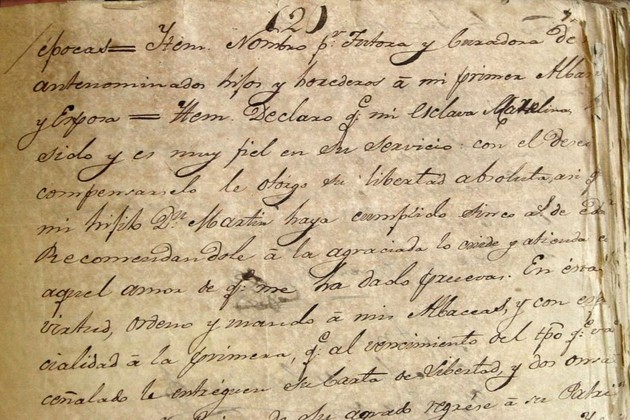 (2)
épocas= Ytem. Nombro pr. Tutora y Curadora de
antenominados hijos y horederos â mi primer Alba
y Esposa = Ytem. Declaro q.e mi esclava
sido y es muy fiel en su servicio: con el dese
compensarselo le otorgo su libertad absoluta, asi q.e
mi hijito Dn. Martin haya cumplido sinco as. de eda
Recomendandole â la agraciada lo cuide y atienda c
aquel amor de q.e me ha dado pruevas. En esta
virtud, ordeno y mando â mis Albaceas, y con esp
cialidad â la primera, q.e al vencimiento del tpo q.e
señalado le entreguen su Carta de Libertad, y dos onsa
de su agrado regrese â su Patri